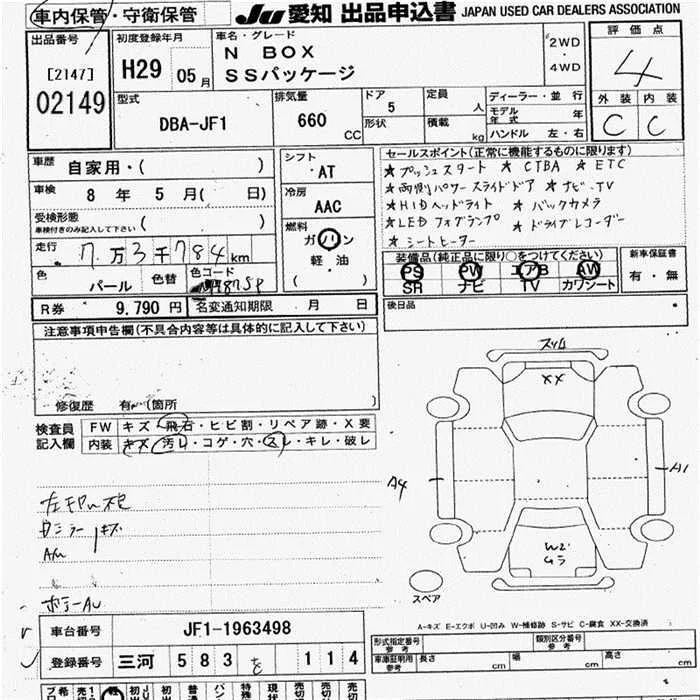 車内保管・守衛保管 JU 愛知 出品申込書 JAPAN USED CAR DEALERS ASSOCIATION
出品番号 初度登録年月 車名・グレード 評価点
[2147] H29 05月 N BOX 2WD・4WD 4
02149 SSパッケージ 外装 内装
型式 排気量 ドア 定員 ディーラー・並行 C C
DBA-JF1 660 CC 5 人 モデル年式 年
形状 積載 kg ハンドル 左・右
車歴 自家用・( ) シフト AT セールスポイント(正常に機能するものに限ります)
★プッシュスタート ★CTBA ★ETC
車検 8年 5月( 日) 冷房 AAC ★両側パワースライドドア ★ナビ・TV
受検形態 ( ) ★HIDヘッドライト ★バックカメラ
車検付きのみ記入して下さい 燃料 ★LEDフォグランプ ★ドライブレコーダー
走行 7万3千784km ガソリン ★シートヒーター
軽・油 装備品(純正品に限り○をつけてください) 新車保証書
色 色替 色コード ( ) PS PW エアB AW 有・無
パール SR ナビ TV カワシート
R券 9,790円 名変通知期限 月 日 後日品
注意事項申告欄(不具合内容等は具体的に記入して下さい)
修復歴 有 (箇所 )
検査員 FW キズ・飛石・ヒビ割・リペア跡・X要
記入欄 内装 キズ・汚レ・コゲ・穴・スレ・キレ・破レ
XX
A4 A1
W2
スペア
A-キズ E-エクボ U-凹み W-補修跡 S-サビ C-腐食 XX-交換済
車台番号 JF1-1963498 形式指定番号 参考 類別区分番号 参考
登録番号 三河 583 と 114 車庫証明用 参考 長さ cm 幅 cm 高さ cm